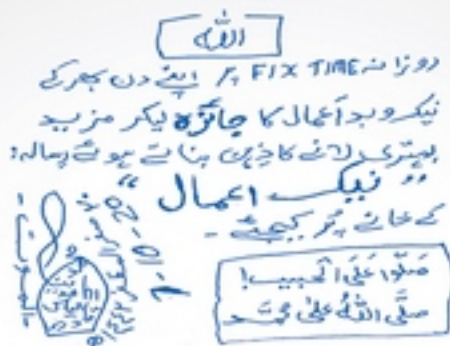 اللّٰه
روزانہ FIX TIME پر اپنے دن بھر کے
نیک و بد اَعمال کا جائزہ لیکر مزید
بہتری لانے کا ذہن بناتے ہوئے رسالہ:
"نیک اعمال"
کے خانے پُر کیجئے۔
صَلُّوا عَلَی الْحَبِیب!
صلَّی اللّٰهُ علٰی محمَّد